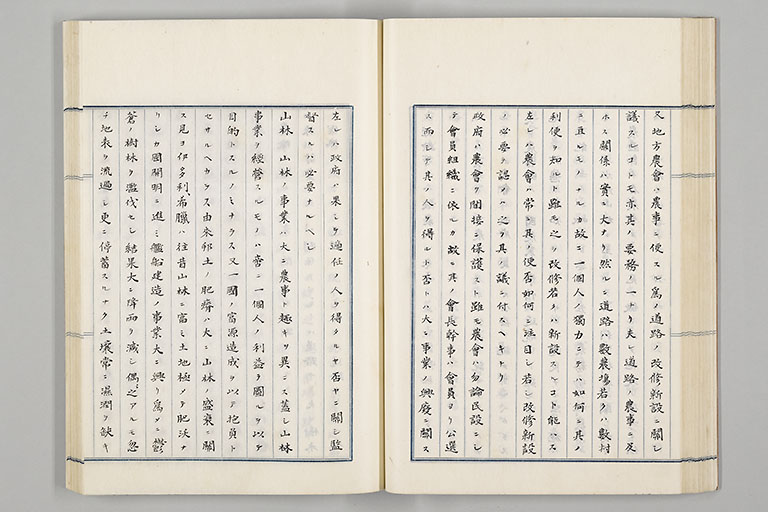 又地方農會ハ農事ニ便スル爲ノ道路ノ改修新設ニ關シ
議スルコトモ亦其ノ要務ノ一ナリ夫レ道路ノ農事ニ及
ホス關係ハ實ニ大ナリ然ルニ道路ハ數農塲若クハ數村
ニ亘ルモノナルカ故ニ一個人ノ獨力ニテハ如何ニ其ノ
利便ヲ知ルト雖モ之ヲ改修若クハ新設スルコト能ハス
左レハ農會ハ常ニ其ノ便否如何ニ注目シ若シ改修新設
ノ必要ヲ認メハ之ヲ其ノ議ニ付スヘキナリ
政府ハ農會ヲ間接ニ保護スト雖モ農會ハ勿論民設ニシ
テ會員組織ニ依ルカ故ニ其ノ會長幹事ハ會員ヨリ公選
ス而シテ其ノ人ヲ得ルト否トハ大ニ事業ノ興廢ニ關ス
左レハ政府ハ果シテ適任ノ人ヲ得タルヤ否ヤニ關シ監
督スルハ必要ナルヘシ
山林 山林ノ事業ハ大ニ農事ト趣キヲ異ニス蓋シ山林
事業ヲ經營スルモノハ啻ニ一個人ノ利益ヲ圖ルヲ以テ
目的トスルノミナラス又一國ノ富源造成ヲ以テ抱負ト
セサルヘカラス由來邦土ノ肥瘠ハ大ニ山林ノ盛衰ニ關
ス見ヨ伊多利、希臘ハ往昔山林ニ富ミ土地極メテ肥沃ナ
リシカ國開明ニ進ミ艦船建造ノ事業大ニ興リ爲メニ鬱
蒼ノ樹林ヲ濫伐セシ結果大ニ降雨ヲ減シ偶之アルモ忽
チ地表ヲ流過シ更ニ停蓄スルナク土壤常ニ濕潤ヲ缺キ